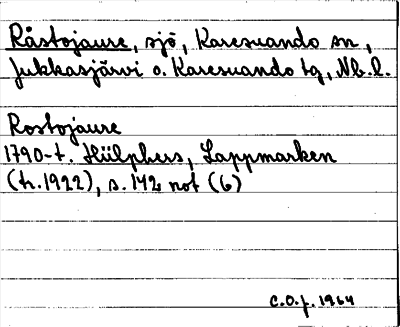 Råstojaure, sjö, Karesuando sn,
Jukkasjärvi o. Karesuando tg, Nb.l.
Rostojaure
1790-t. Hülphers, Lappmarken
(tr. 1922), s. 142 not (6)
C.O.f. 1964